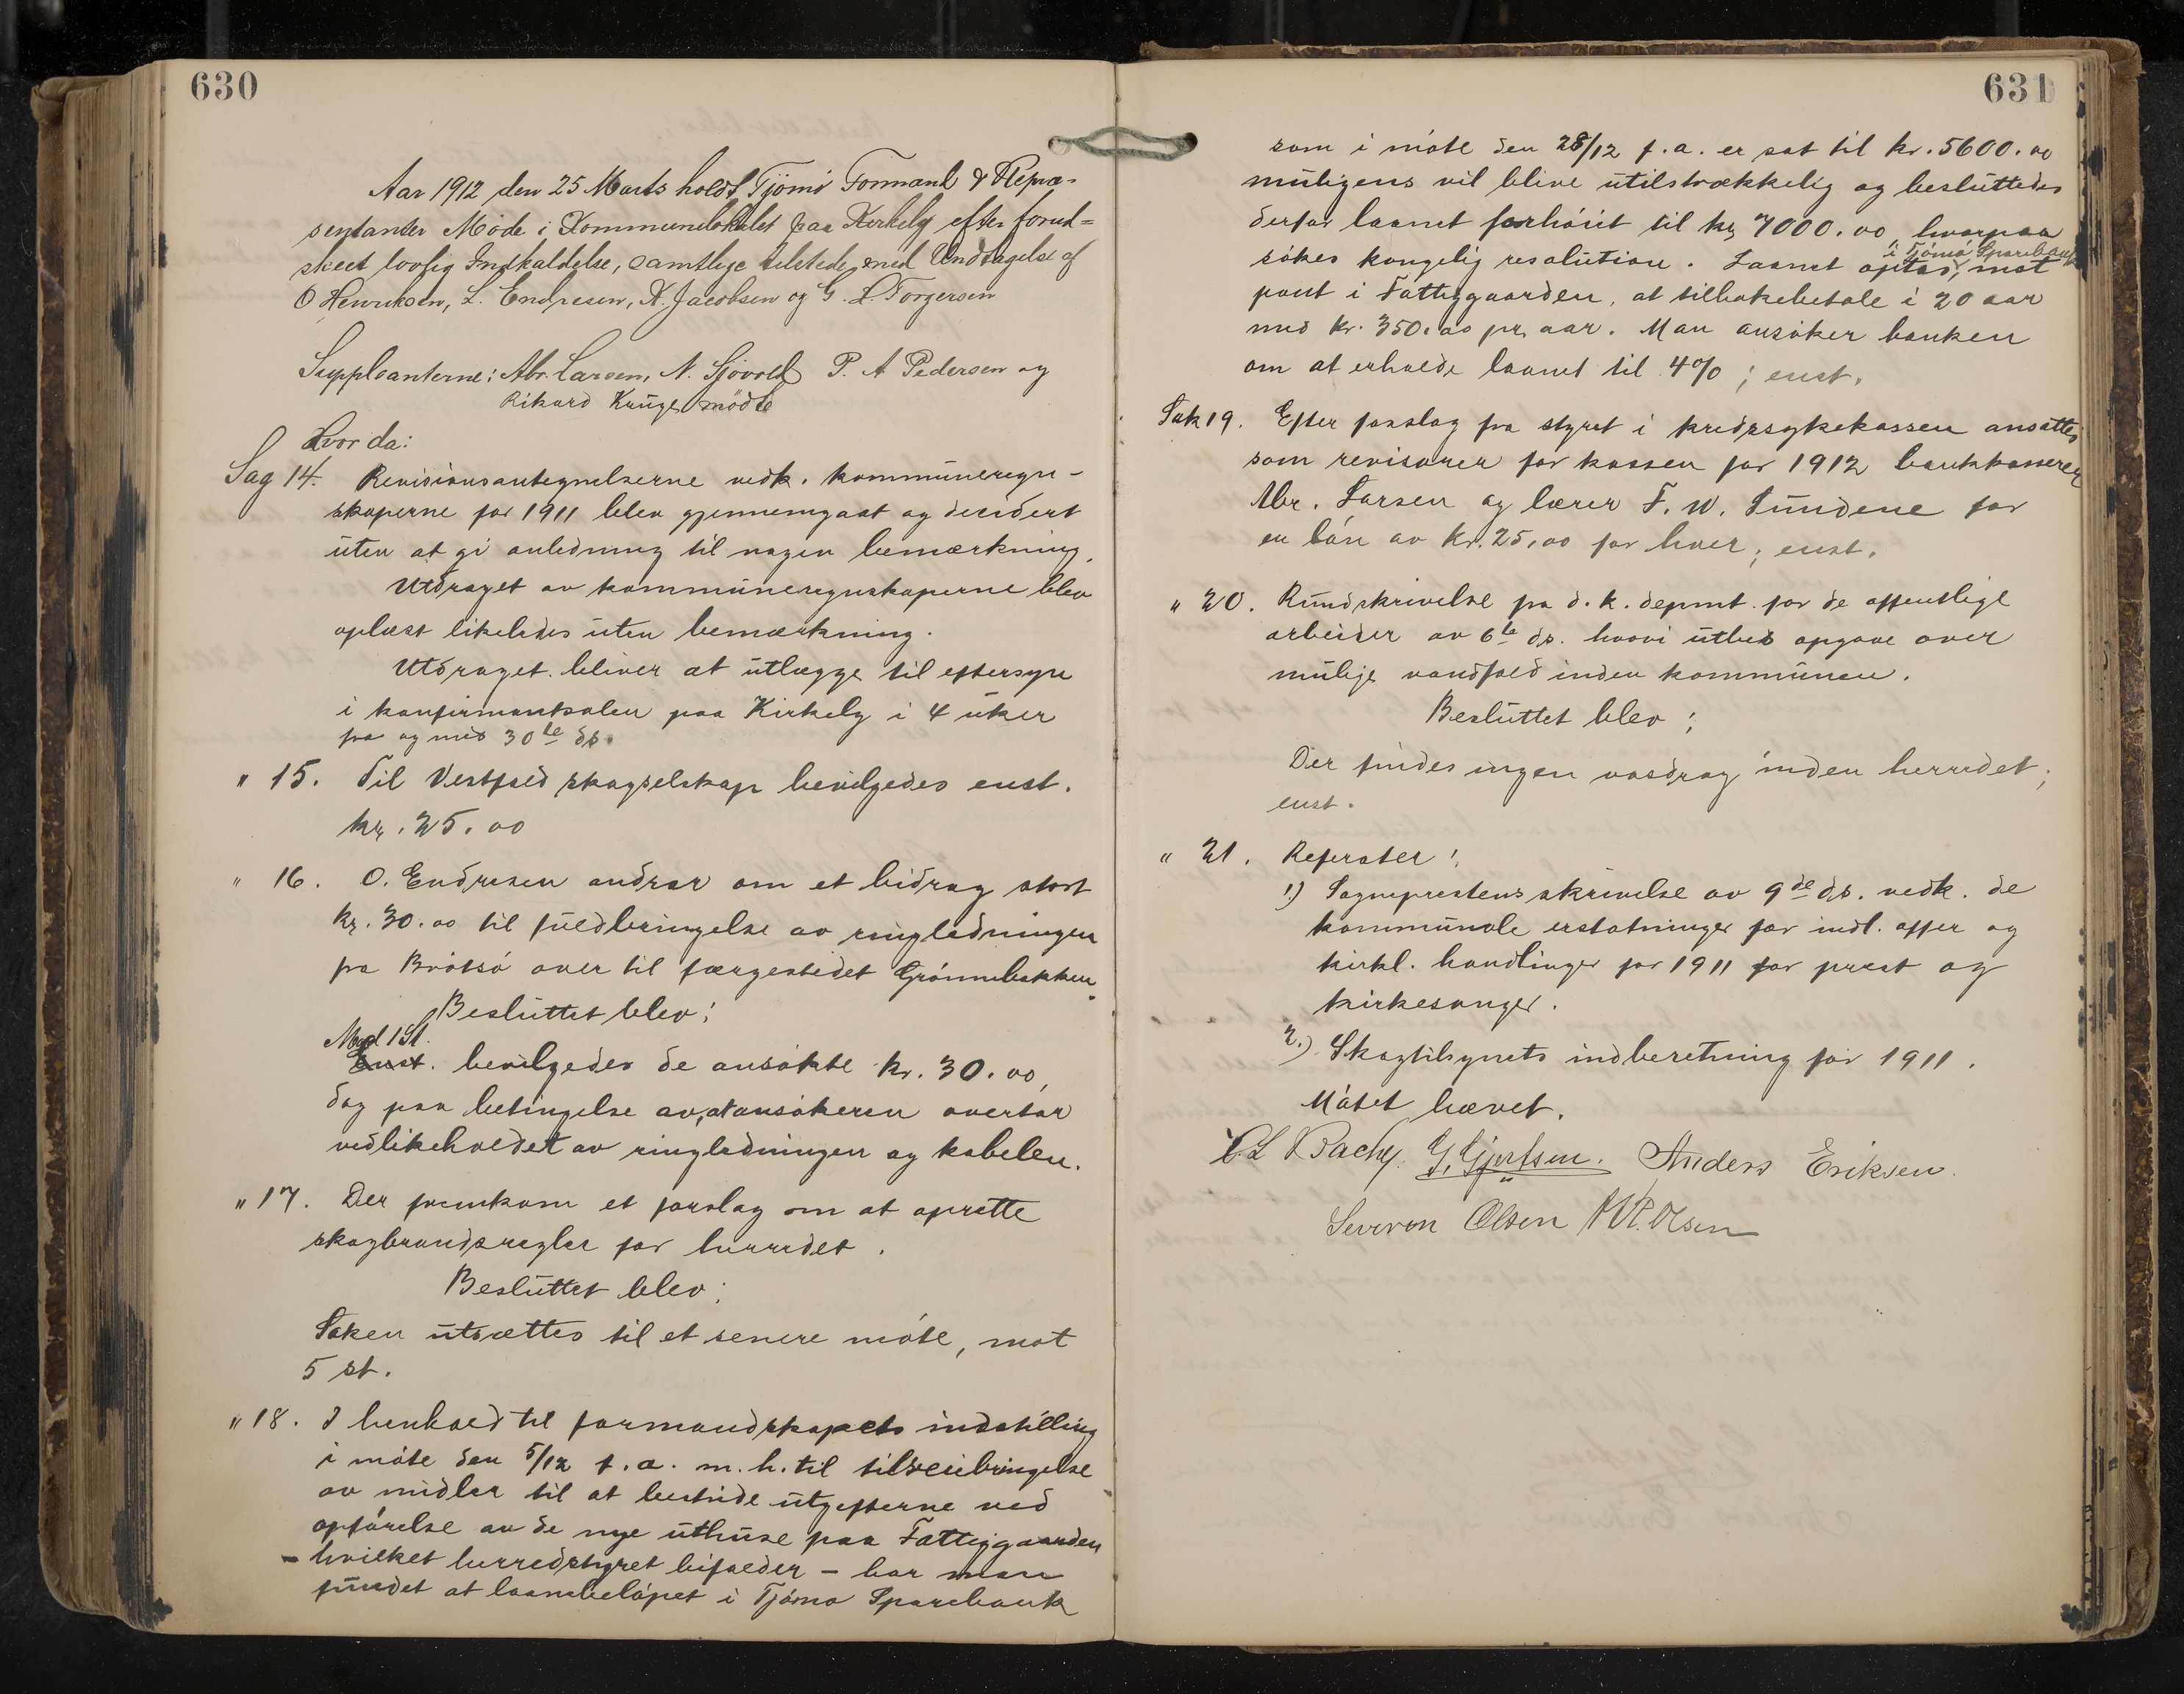 630
Aar 1912 den 25 Marts holdt Tjömö Formand & Repræ-
sentanter Møde i Kommunelokalet paa Kirkely efter forud=
skeet lovlig Indkaldelse, samtlige tilstede med Undtagelse af
O Henriksen, L. Endresen, K. Jacobsen og G. L. Torgersen
Suppleanterne: Abr. Larsen, N. Sjövold P. A Pedersen og
Rikard Krüger mødte
Hvor da:
Sag 14. Revisionsantegnelserne vedk. kommuneregn-
skaperne for 1911 blev gjennemgaat og decidert
uten at gi anledning til nogen bemærkning.
Utdraget av kommuneregnskaperne blev
oplæst likeledes uten bemærkning.
Utdraget bliver at utlægge til eftersyn
i konfirmantsalen paa Kirkely i 4 uker
fra og med 30te ds.
" 15. Til Vestfold skogselskap bevilgedes enst.
kr. 25.00
" 16. O. Endresen andrar om et bidrag stort
kr. 30.00 til fuldbringelse av ringledningen
fra Brøtsö over til færgestedet Grönnebakken.
Besluttet blev:
Mod 1 St.
Enst. bevilgedes de ansøkte kr. 30.00,
dog paa betingelse av, at ansøkeren overtar
vedlikeholdet av ringledningen og kabelen.
" 17. Der fremkom et forslag om at oprette
skogbrandsregler for herredet.
Besluttet blev:
Saken utsættes til et senere møte, mot
5 st.
" 18. I henhold til formandskapets indstilling
i møte den 5/12 f.a. m.h. til tilveiebringelse
av midler til at bestride utgifterne ved
opførelse av de nye uthuse paa Fattiggaarden
- hvilket herredstyret bifalder - har man
fundet at laanebeløpet i Tjømø Sparebank
631
som i møte den 28/12 f.a. er sat til kr. 5600.00
muligens vil blive utilstrækkelig og besluttedes
derfor laanet forhøiet til kr 7000.00 hvorpaa
søkes kongelig resolution. Laanet optas, i Tjömö Sparebank mot
pant i Fattiggaarden, at tilbakebetale i 20 aar
med kr. 350.00 pr. aar. Man ansøker banken
om at erholde laanet til 4%; enst.
Sak 19. Efter forslag fra styret i kredssykekassen ansattes
som revisorer for kassen for 1912 bankkasserer
Abr. Larsen og lærer F. W. Sundene for
en løn av kr. 25,00 for hver; enst.
" 20. Rundskrivelse fra d. k. depmt. for de offentlige
arbeider av 6te ds. hvori utbes opgave over
mulige vandfald inden kommunen.
Besluttet blev:
Der findes ingen vasdrag inden herredet;
enst.
" 21. Referater:
1.) Sogneprestens skrivelse av 9de ds. vedk. de
kommunale erstatninger for indl. offer og
kirkl. handlinger for 1911 for prest og
kirkesanger.
2.) Skogtilsynets indberetning for 1911.
Møtet hævet.
Bache G. Gjertsen. Anders Eriksen.
Severin Olsen Olsen